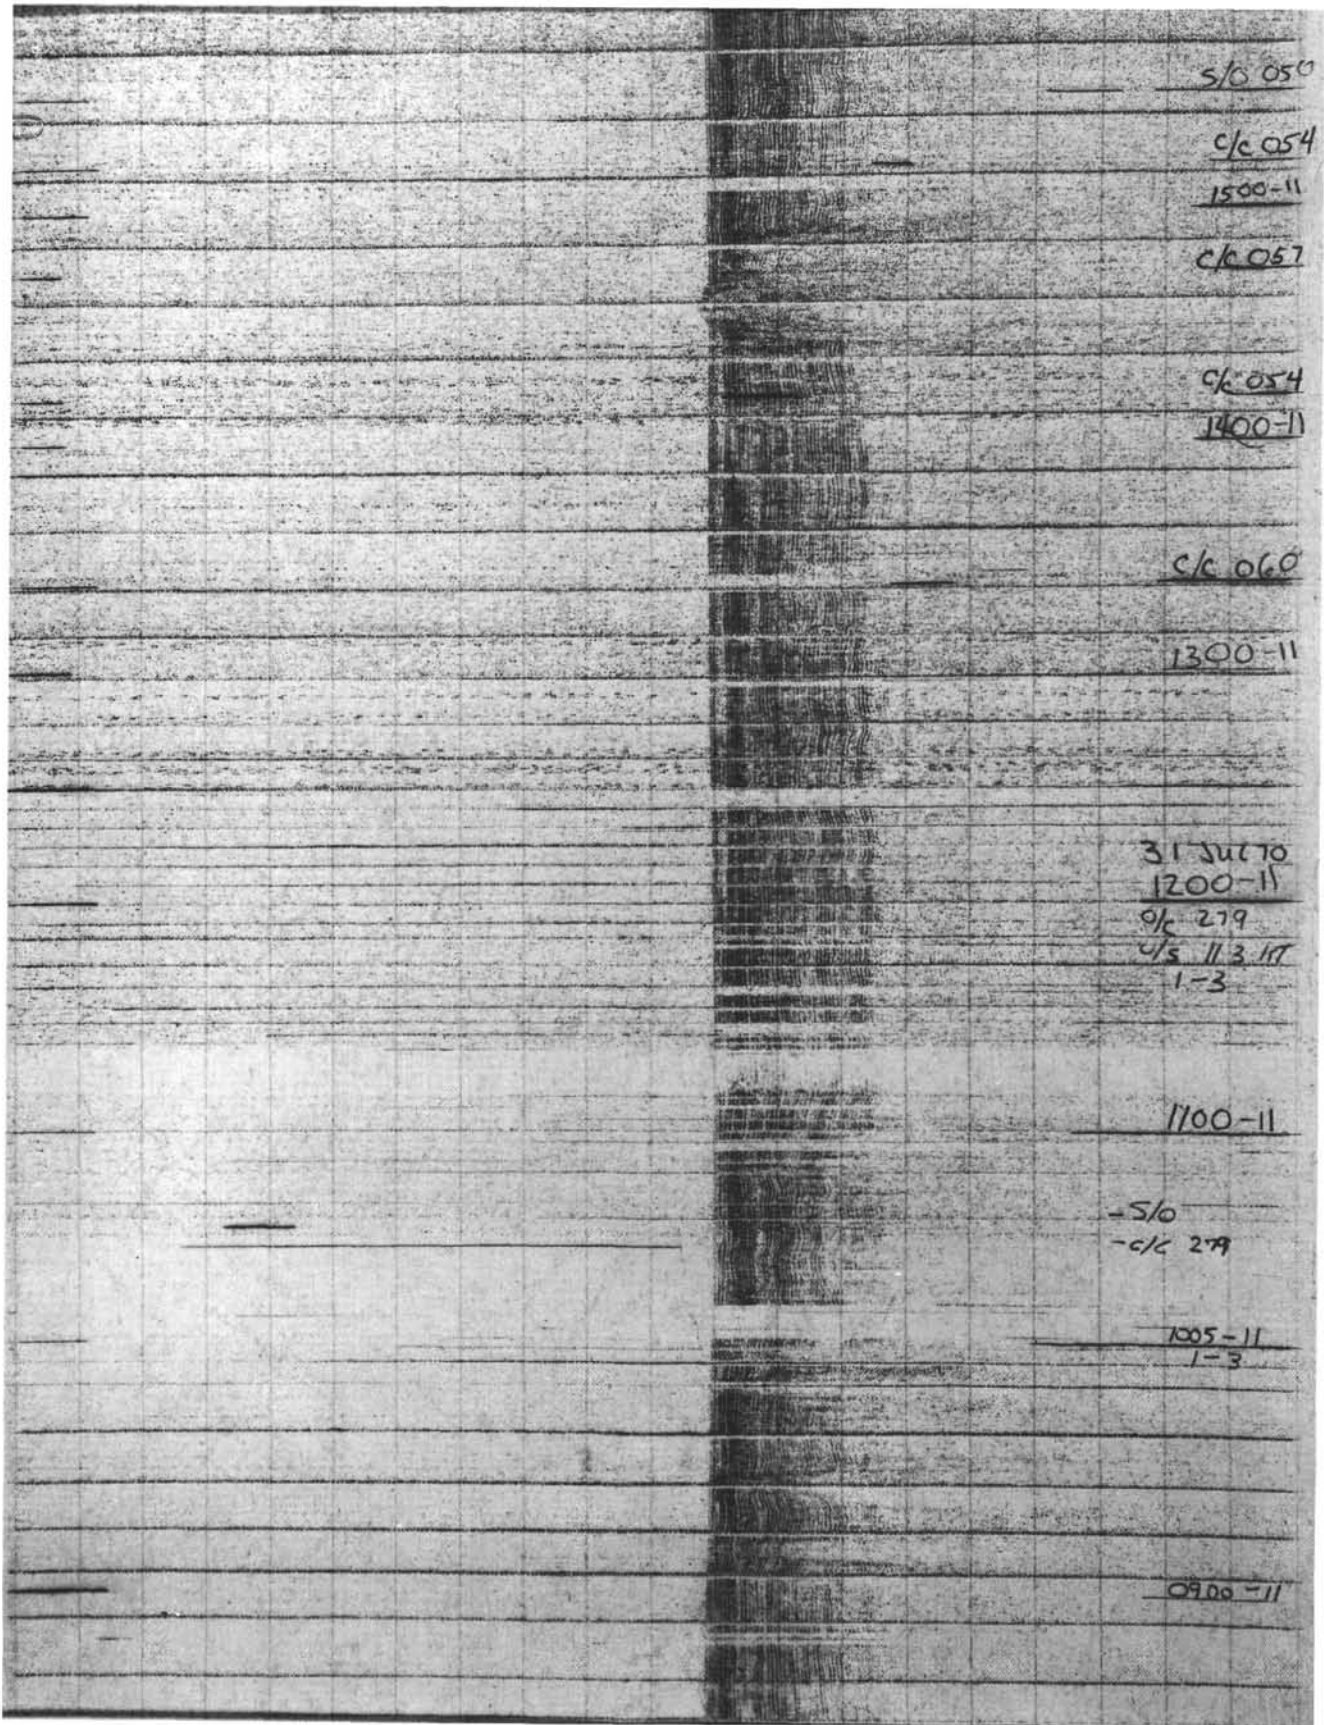 S/O 050
C/C 054
1500-11
C/C 057
C/C 054
1400-11
C/C 060
1300-11
31 JUL 70
1200-11
O/C 279
1-3
1100-11
- S/O
- C/C 279
1005-11
1-3
0900-11